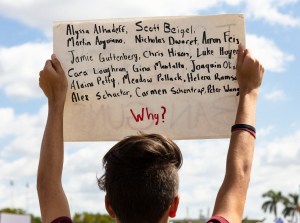 Alyssa Alhadeff, Scott Beigel,
Martin Anguiano, Nicholas Dworet, Aaron Feis,
Jamie Guttenberg, Chris Hixon, Luke Hoyer
Cara Loughran, Gina Montalto, Joaquin Ol
Alaina Petty, Meadow Pollack, Helena Ramsa
Alex Schacter, Carmen Schentrup, Peter Wang
Why?